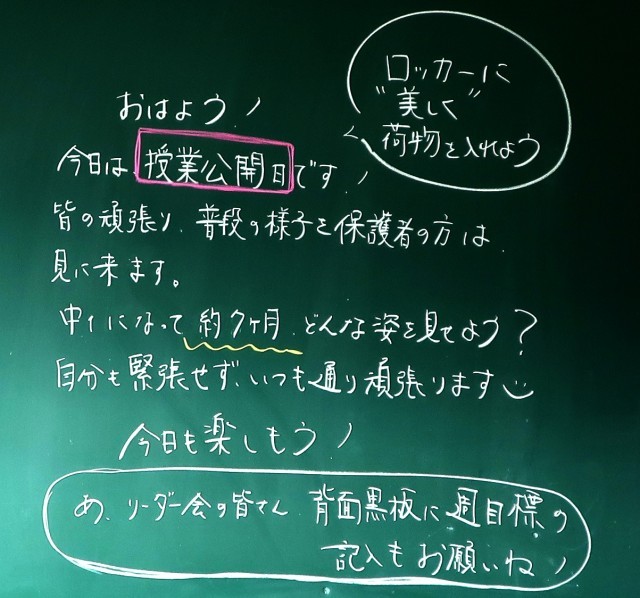 ロッカーに
"美しく"
荷物を入れよう
おはよう!
今日は、授業公開日です!
皆の頑張り、普段の様子を保護者の方は
見に来ます。
中1になって約7ヶ月、どんな姿を見せよう?
自分も緊張せず、いつも通り頑張ります
今日も楽しもう!
あ、リーダー会の皆さん、背面黒板に週目標の
記入もお願いね!